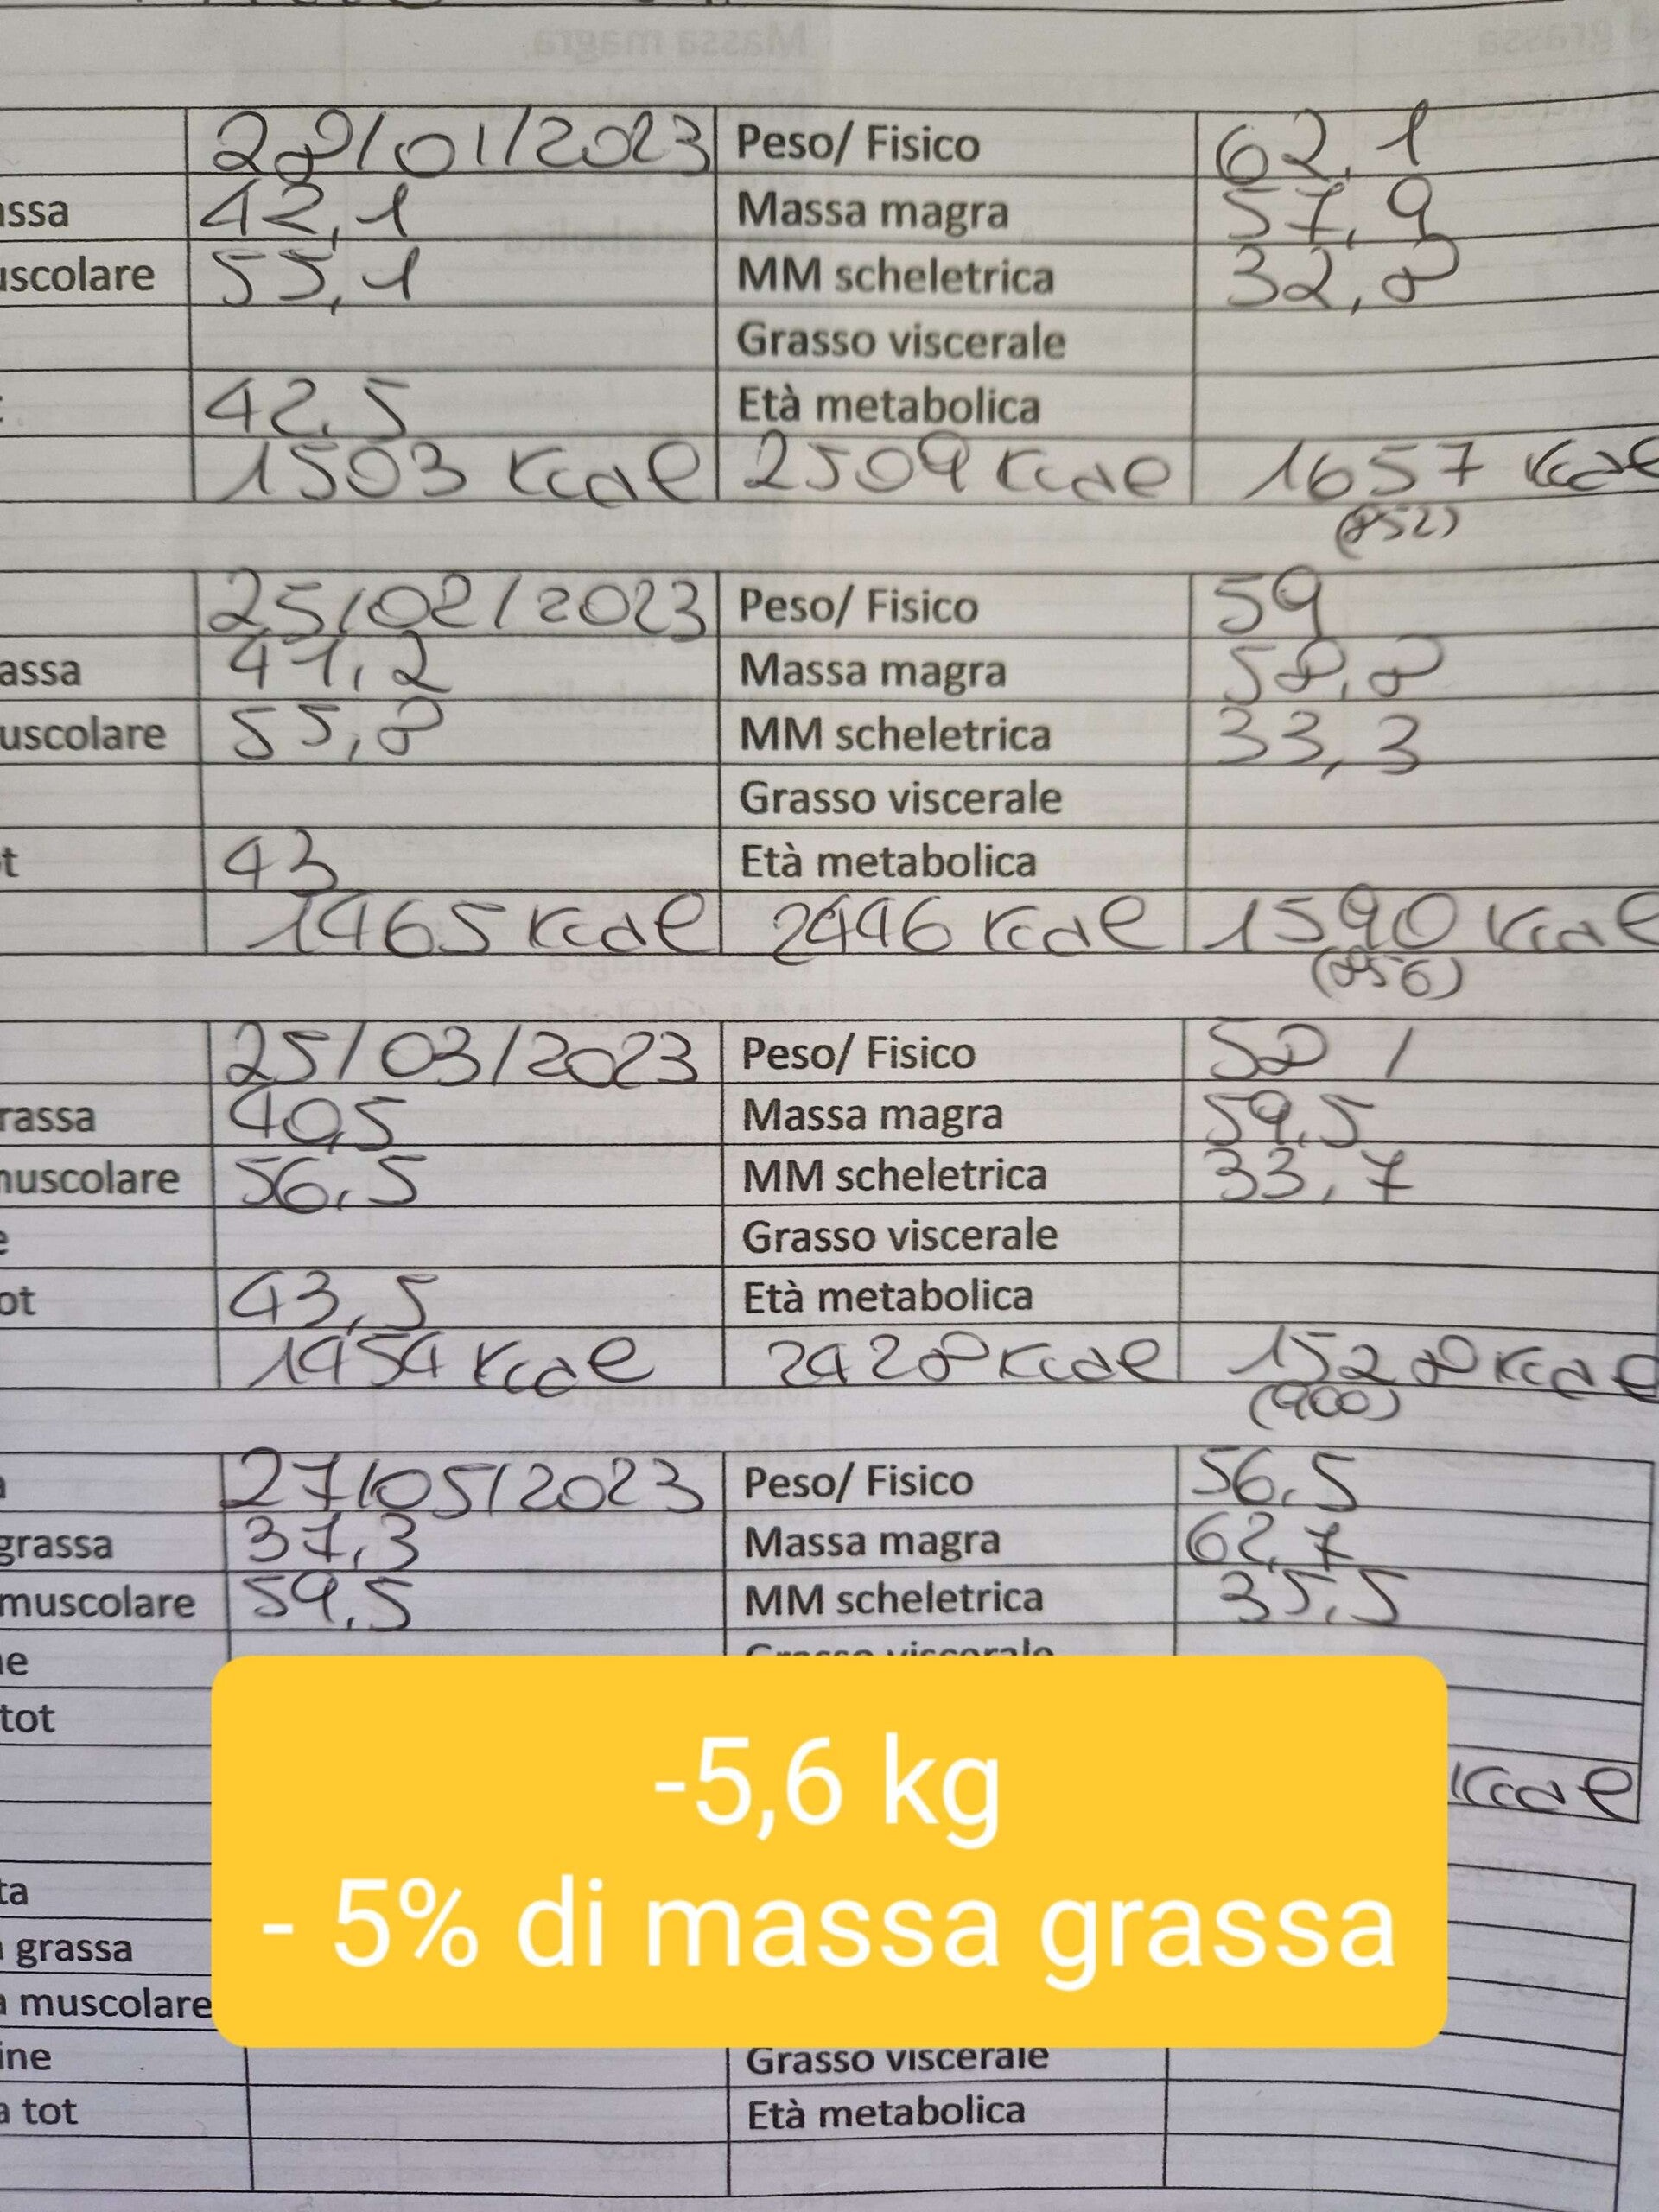 28/01/2023 Peso/ Fisico 62,1
assa 42,1 Massa magra 57,9
uscolare 55,1 MM scheletrica 32,8
Grasso viscerale
42,5 Età metabolica
1503 Kcal 2509 Kcal 1657 Kcal
(852)
25/02/2023 Peso/ Fisico 59
assa 41,2 Massa magra 58,8
uscolare 55,8 MM scheletrica 33,3
Grasso viscerale
t 43 Età metabolica
1465 Kcal 2446 Kcal 1590 Kcal
(856)
25/03/2023 Peso/ Fisico 58 /
rassa 40,5 Massa magra 59,5
muscolare 56,5 MM scheletrica 33,7
e Grasso viscerale
ot 43,5 Età metabolica
1454 Kcal 2428 Kcal 1528 Kcal
(900)
27/05/2023 Peso/ Fisico 56,5
grassa 37,3 Massa magra 62,7
muscolare 59,5 MM scheletrica 35,5
ne Grasso viscerale
tot
Kcal
-5,6 kg
- 5% di massa grassa
ta
a grassa
a muscolare
ine Grasso viscerale
a tot Età metabolica